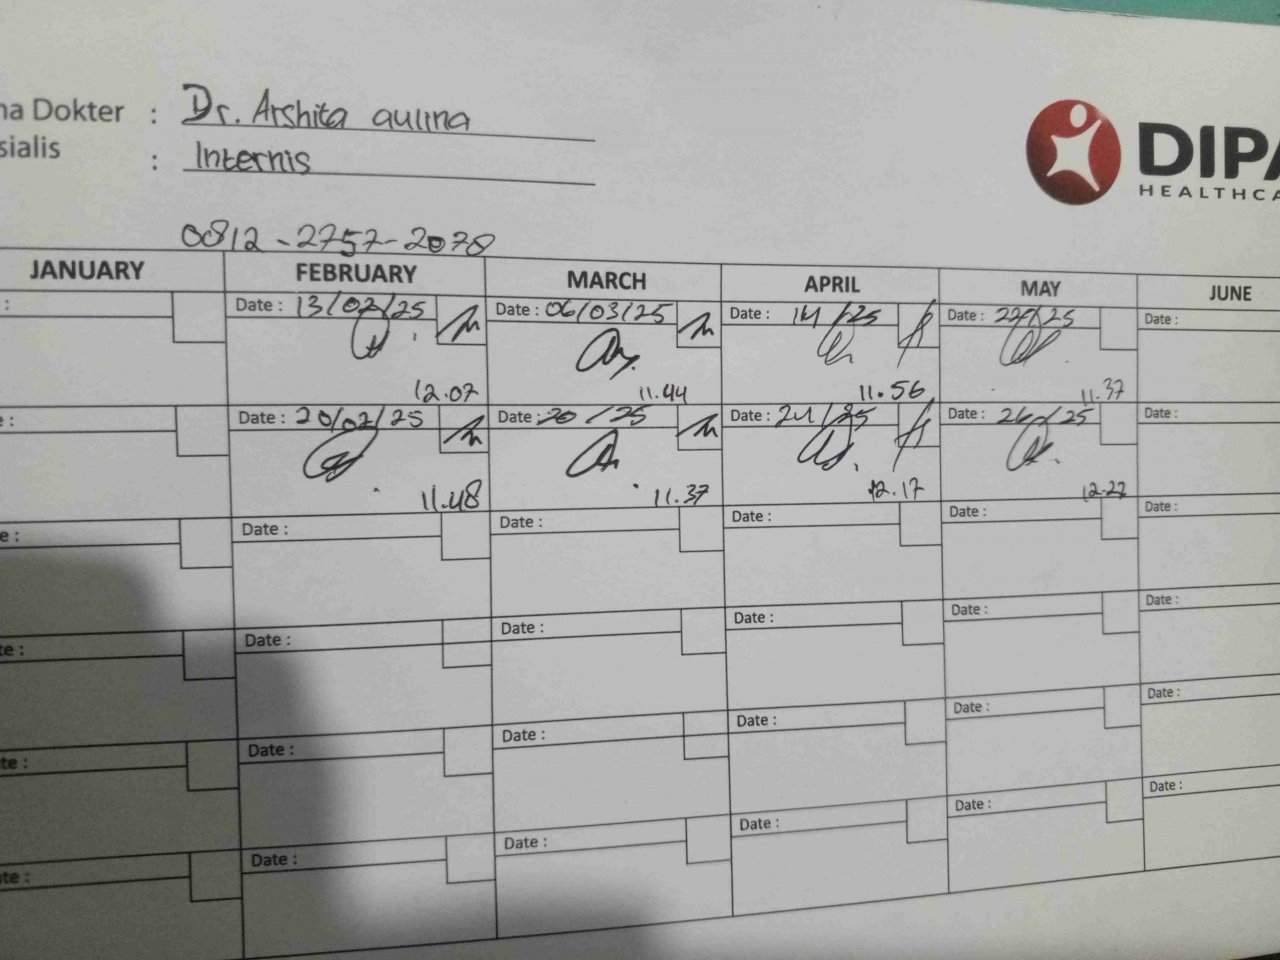 na Dokter : Dr. Arshita aulina
sialis : Internis
DIPA
HEALTHCA
0812-2757-2078
JANUARY FEBRUARY MARCH APRIL MAY JUNE
: Date : 13/02/25 Date : 06/03/25 Date : 14/25 Date : 22/25 Date :
12.07 11.44 11.56 11.37
e : Date : 20/02/25 Date : 20/25 Date : 24/25 Date : 26/25 Date :
11.48 11.37 12.17 12.22
e : Date : Date : Date : Date : Date :
te : Date : Date : Date : Date : Date :
te : Date : Date : Date : Date : Date :
te : Date : Date : Date : Date : Date :